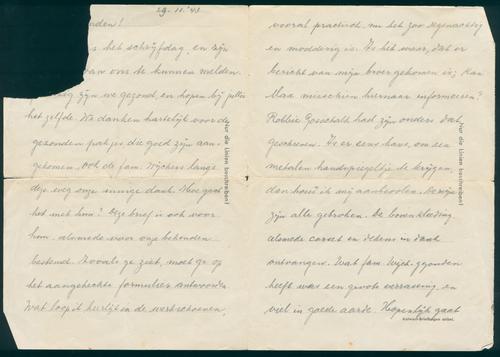 29.11.'43
den!
s het schrijfdag, en zijn
van ons te kunnen melden.
zijn we gezond, en hopen bij jullie
het zelfde. We danken hartelijk voor de
gezonden pakjes die goed zijn aan-
gekomen, ook de fam. Wijchers langs
deze weg onze innige dank. Hoe gaat
het met hem? Deze brief is ook voor
hem, alsmede voor onze bekenden
bestemd. Zooals ge ziet, moet ge op
het aangehechte formulier antwoorden.
Wat loopt heerlijk in de werkschoenen,
Nur die Linien beschreiben!
vooral practisch, nu het zoo regenachtig
en modderig is. Is het waar, dat er
bericht van mijn broer gekomen is; Kan
Max misschien hiernaar informeeren?
Robbie Gosschalk had zijn ouders dat
geschreven. Is er eens kans, om een
metalen handspiegeltje te krijgen,
dan houd ik mij aanbevolen.
zijn alle gebroken. De bovenkleding
alsmede corset en dekens in dank
ontvangen. Wat fam. Wijch. gezonden
heeft was een groote verrassing, en
viel in goede aarde. Hopenlijk gaat
Nur die Linien beschreiben!